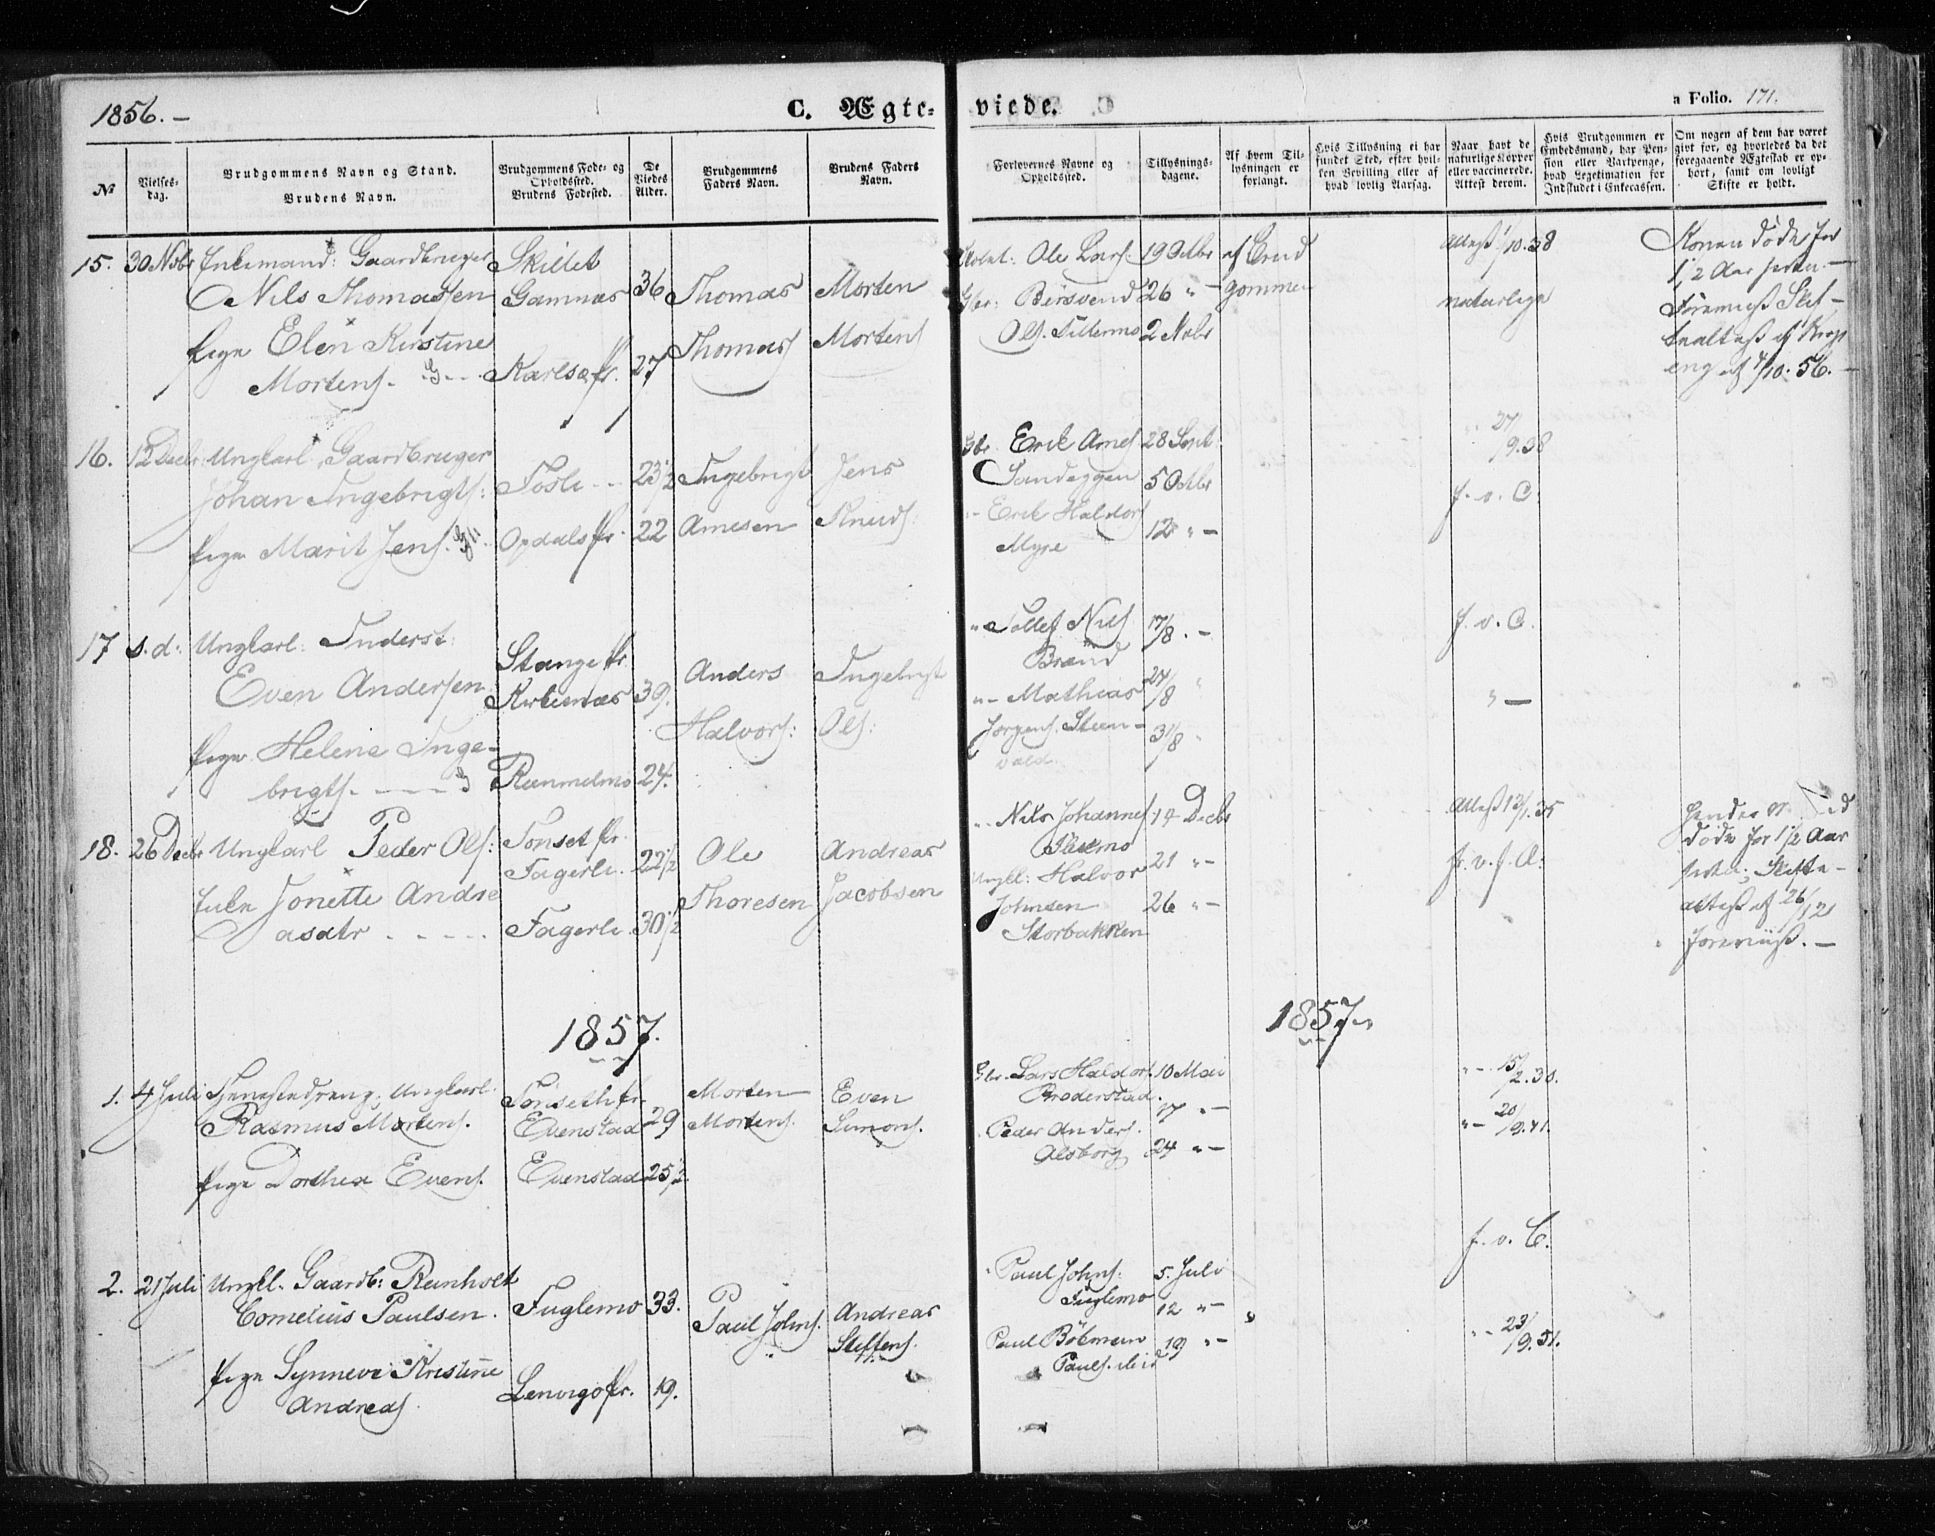 1856. —
C. Ægte-
viede.
a Folio. 171.
№
Vielses-
dag.
Brudgommens Navn og Stand.
Brudens Navn.
Brudgommens Føde- og
Opholdssted.
Brudens Fødested.
De
Viedes
Alder.
Brudgommens
Faders Navn.
Brudens Faders
Navn.
Forlovernes Navne og
Opholdssted.
Tillysnings-
dagene.
Af hvem Til-
lysningen er
forlangt.
Hvis Tillysning ei har
fundet Sted, efter hvil-
ken Bevilling eller af
hvad lovlig Aarsag.
Naar havt de
naturlige Kopper
eller vaccinerede.
Attest derom.
Hvis Brudgommen er
Embedsmand, har Pen-
sion eller Vartpenge,
hvad Legetimation for
Indskudet i Enkecassen.
Om nogen af dem har været
givt før, og hvorledes da det
foregaaende Ægteskab er op-
hørt, samt om lovligt
Skifte er holdt.
15. 30 Nvbr Enkemand: Gaardbruger
Nils Thomassen
Pige Elen Kirstine
Mortens.
Skillet
Gamnæs
Karlsø Pr.
36
27
Thomas
Thomas
Morten
Mortens
Ole Lars:
Gbr: Børsvend
Ols. Tillermo
19 Octbr
26 " —
2 Nvbr
af Brud
gommen
Attest 1/10.38
naturlige
Konen døde for
1/2 Aar siden. —
Forevist Skif-
af 7/10.56. —
16. 12 Decbr Ungkarl, Gaardbruger
Johan Ingebrigts:
Pige Marit Jens.
Fosli
Opdals Pr.
23 1/2
22
Ingebrigt
Arnesen
Jens
Knuds.
Gbr. Erik Arnes
Sandeggen
"- Erik Haldors
Myre
28 Sept.
5 Octbr
12 " —
27/9.38
f. v. C.
17 s.d: Ungkarl: Inderst:
Even Andersen
Pige Helene Inge-
brigts.
Stange Pr.
Kirkenæs
39.
24.
Anders
Halvors:
Ingebrigt
Ols:
" Tollef Nils
Brænd
"- Mathias
Jørgens. Steen-
vold.
17/8. —
24/8 "
31/8 "
f. v. C.
" —
18. 26 Decbr Ungkarl Peder Ols:
Enke Jonette Andre
asdtr
Tønset Pr.
Fagerli.
Fagerli.
22 1/2
30 1/2
Ole
Thoresen
Andreas
Jacobsen
"- Nils Johannes
Ungkl: Halvor
Johnsen
Storbakken
14 Decbr
21 " —
26 " —
Attest 13/1.35
døde for 1 1/2 Aar
siden; Skifte-
attest af 26/12
forevist. —
1857.
1857.
1. 4 Juli Tjenestedreng, Ungkarl.
Rasmus Mortens.
Pige Dorthea Evens.
Tønseth Pr.
Evenstad
Evenstad
29
25 1/2.
Morten
Mortens.
Even
Simons.
Gbr. Lars Haldors.
Broderstad.
Peder Anders.
Alsborg
10 Mai
17 " —
24 " —
"- 15/2.30.
"- 20/9.41.
2. 21 Juli Ungkl. Gaardb: Reinholt
Cornelius Paulsen.
Pige Synneve Kristine
Andreas.
Fuglemo
Lenvigs Pr.
33.
19.
Paul Johns.
Andreas
Steffens.
Paul Johns:
Fuglemo
Paul Böhmen
Pauls. ibid
5. Juli
12 " —
19 " —
f. v. C.
"- 23/9.51.